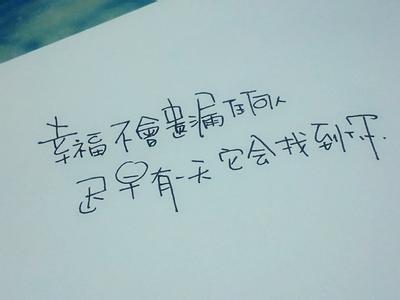 幸福不會遺漏任何人
迟早有一天它会找到你.